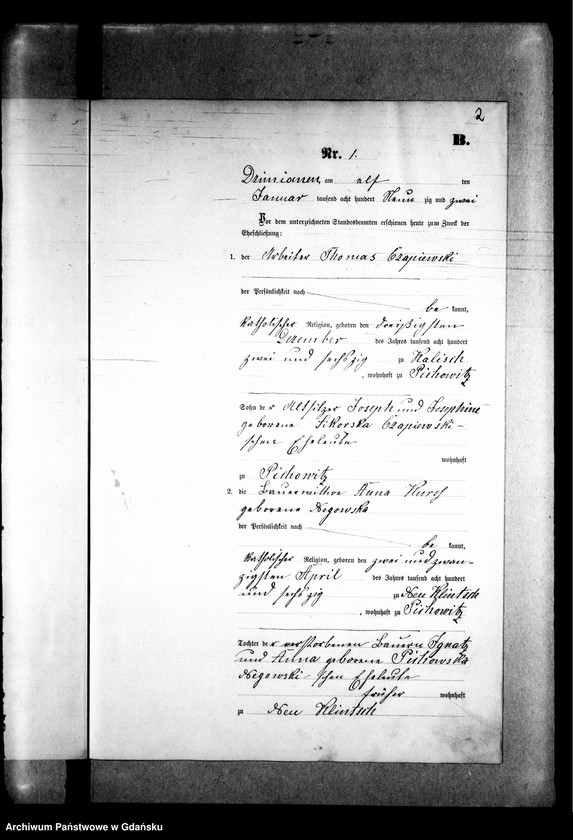 2
B.
Nr. 1.
Dzimianen, am elf ten
Januar tausend acht hundert Neun zig und zwei
Vor dem unterzeichneten Standesbeamten erschienen heute zum Zweck der
Eheschließung:
1. der Arbeiter Thomas Czapiewski
der Persönlichkeit nach
be kannt,
katholischer Religion, geboren den dreißigsten
Dezember des Jahres tausend acht hundert
zwei und sechszig zu Kalisch
, wohnhaft zu Pichowitz
Sohn der Altsitzer Joseph und Josephine
geborene Sikorska Czapiewski-
schen Eheleute
wohnhaft
zu Pichowitz
2. die Bauerwittwe Anna Kursch
geborene Negowska
der Persönlichkeit nach
be kannt,
katholischer Religion, geboren den zwei und zwan-
zigsten April des Jahres tausend acht hundert
und sechszig zu Neu Klintsch
, wohnhaft zu Pichowitz
Tochter der verstorbenen Bauern Ignatz
und Anna geborene Pichowska
Negowski-schen Eheleute
früher wohnhaft
zu Neu Klintsch
Archiwum Państwowe w Gdańsku